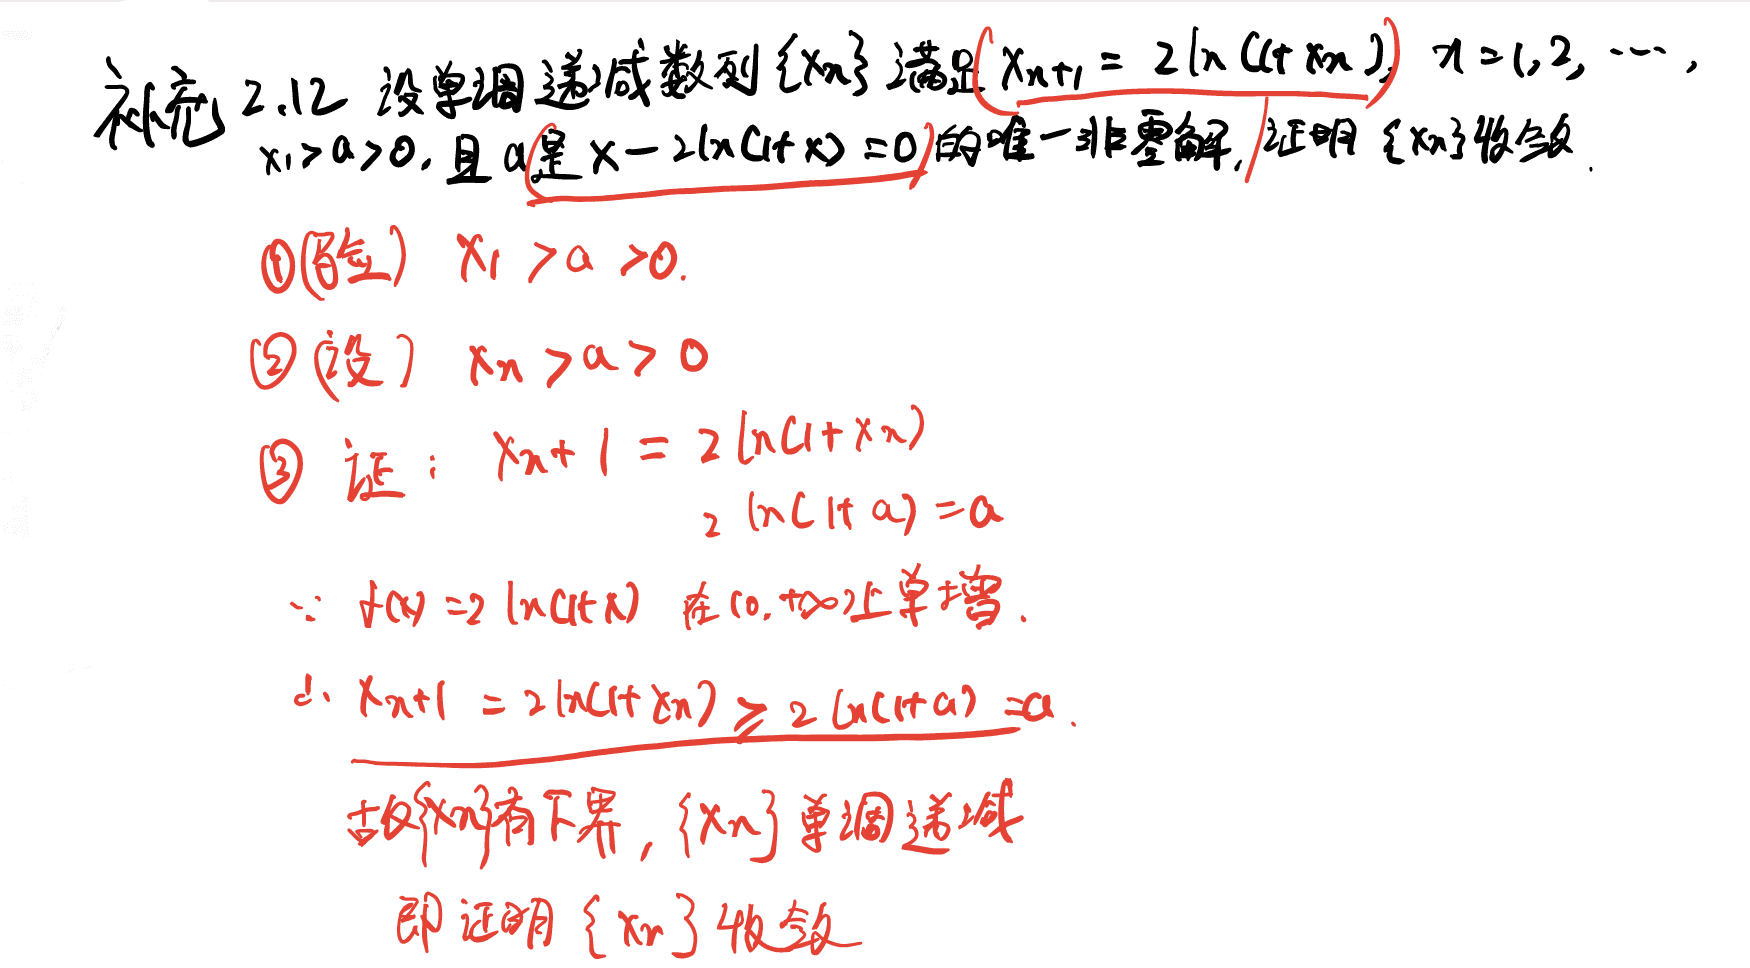 补充 2.12 设单调递减数列{xn}满足(xn+1 = 2ln(1+xn)), n=1,2,…,
x1>a>0,且a是x-2ln(1+x)=0的唯一非零解,证明{xn}收敛.
①(验) x1 >a >0.
②(设) xn >a> 0
③ 证: xn+1 = 2ln(1+xn)
2ln(1+a)=a
∵ f(x)=2ln(1+x) 在(0,+∞)上单增.
∴ xn+1 = 2ln(1+xn) ≥ 2ln(1+a) =a.
故{xn}有下界, {xn}单调递减
即证明{xn}收敛